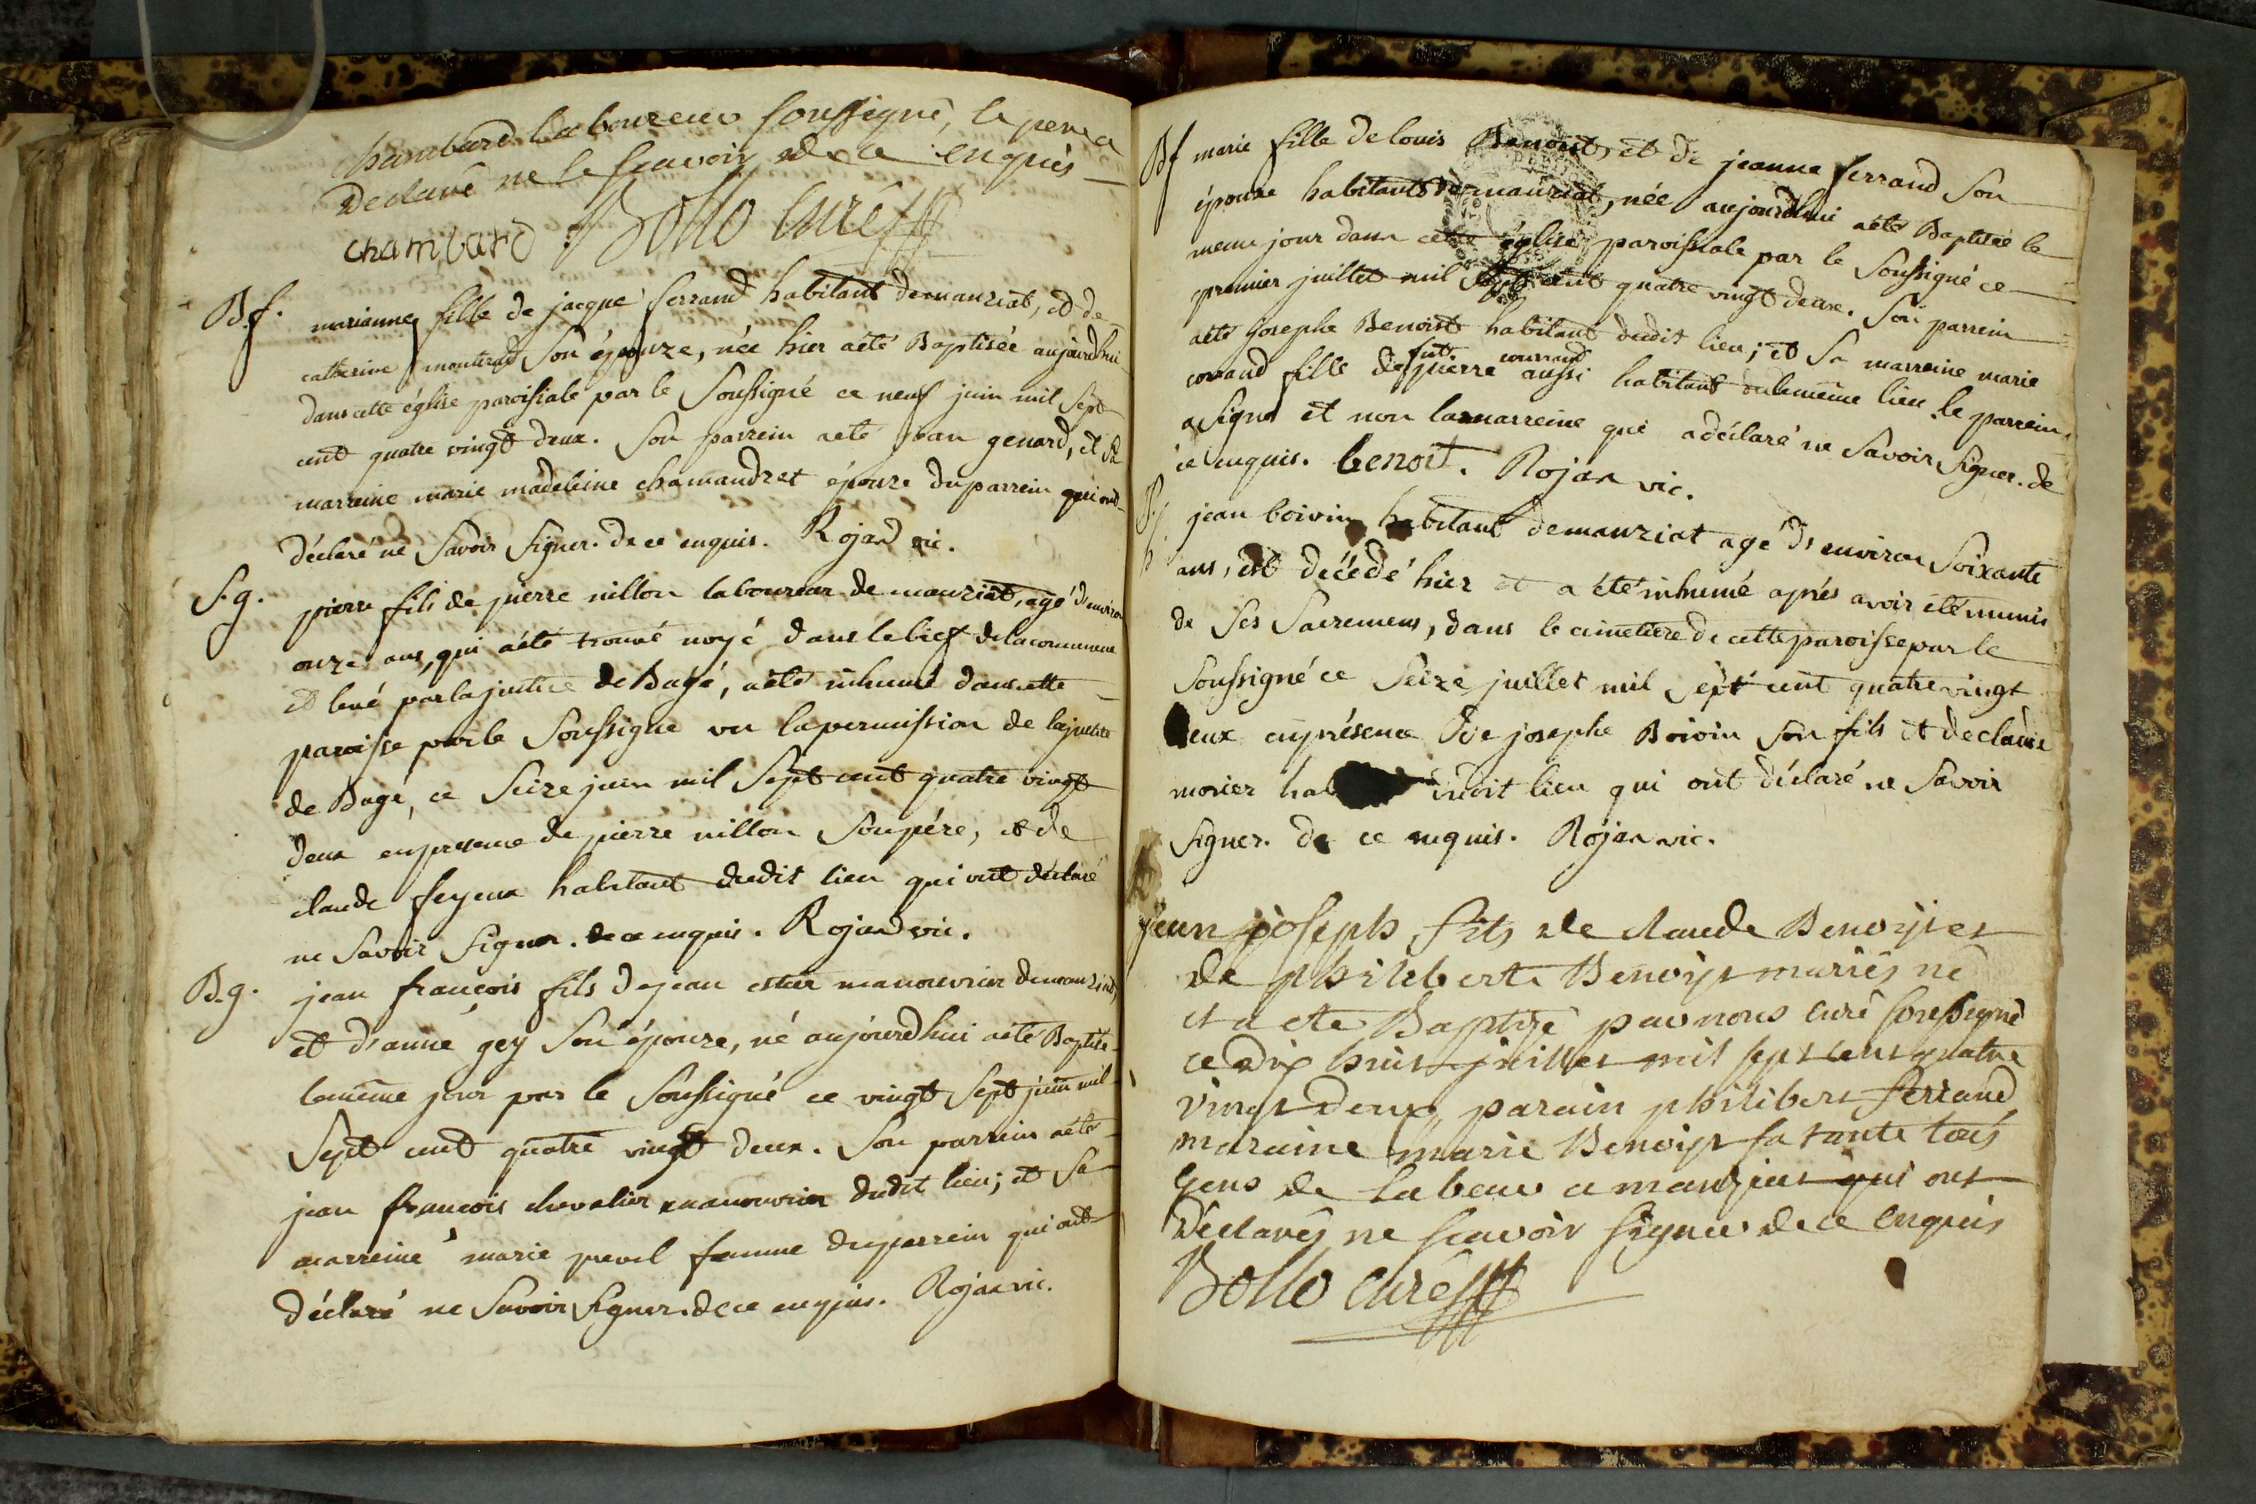 chambard laboureur soussigné, le pere a
declaré ne le scavoir de ce enquis
chambard Bollo curé
B.f. marianne fille de jacque ferrand habitant demanziat, et de
catherine monterad son épouze, née hier aété Baptisée aujourdhui
dans cette église paroissiale par le soussigné ce neuf juin mil sept
cent quatre vingt deux. son parrein aeté jean genard, et sa
marreine marie madeleine chamandret épouze duparrein qui ont
déclaré ne savoir signer. de ce enquis. Rojard vic.
S.g. pierre fils de pierre nillon laboureur de manziat, agé d'environ
onze ans, qui aété trouvé noyé dans le bief delacommune
et levé par lajustice de Bagé, aété inhumé dans cette
paroisse par le soussigné vu lapermission de lajustice
de Bagé, ce seize juin mil sept cent quatre vingt
deux enpresence de pierre nillon son pére, et de
claude feyeux habitant dudit lieu qui ont déclaré
ne savoir signer. de ce enquis. Rojard vic.
B.g. jean françois fils dejean manouvrier demanziat
et d'anne gey son épouze, né aujourdhui aété Baptisé
lemême jour par le soussigné ce vingt sept juin mil
sept cent quatre vingt deux. son parrein aété
jean françois chevalier manouvrier dudit lieu; et sa
marreine marie pevel femme duparrein qui ont
déclaré ne savoir signer. dece enquis. Rojar vic.
Bf marie fille de louis Benoist, et de jeanne ferrand son
épouze habitants demanziat, née aujourdhui aété Baptisée le
meme jour dans cette église paroissiale par le soussigné ce
premier juillet mil sept cent quatre vingt deux. son parrein
aété josephe Benoist habitant dudit lieu; et sa marreine marie
covand fille de fut pierre couvrand aussi habitant dumême lieu. le parrein
asigné et non lamarreine qui adéclaré ne savoir signer. de
ce enquis. benoit. Rojar vic.
jean boivin habitant demanziat agé d'environ soixante
ans, est décédé hier et a été inhumé aprés avoir été munis
de ses sacremens, dans le cimetiere de cette paroisse par le
soussigné ce seize juillet mil sept cent quatre vingt
deux enprésence de josephe Boivin son fils et declaude
morier hab dudit lieu qui ont déclaré ne savoir
signer. de ce enquis. Rojar vic.
jean joseph, fils de claude Benoist et
de philiberte Benoist mariés né
et a eté Baptizé par nous curé soussigné
ce dix huit juillet mil sept cent quatre
vingt deux, parain philibert ferrand
maraine marie Benoist sa tante tous
gens de labeur a manziat qui ont
déclarés ne scavoir signer de ce enquis
Bollo curé